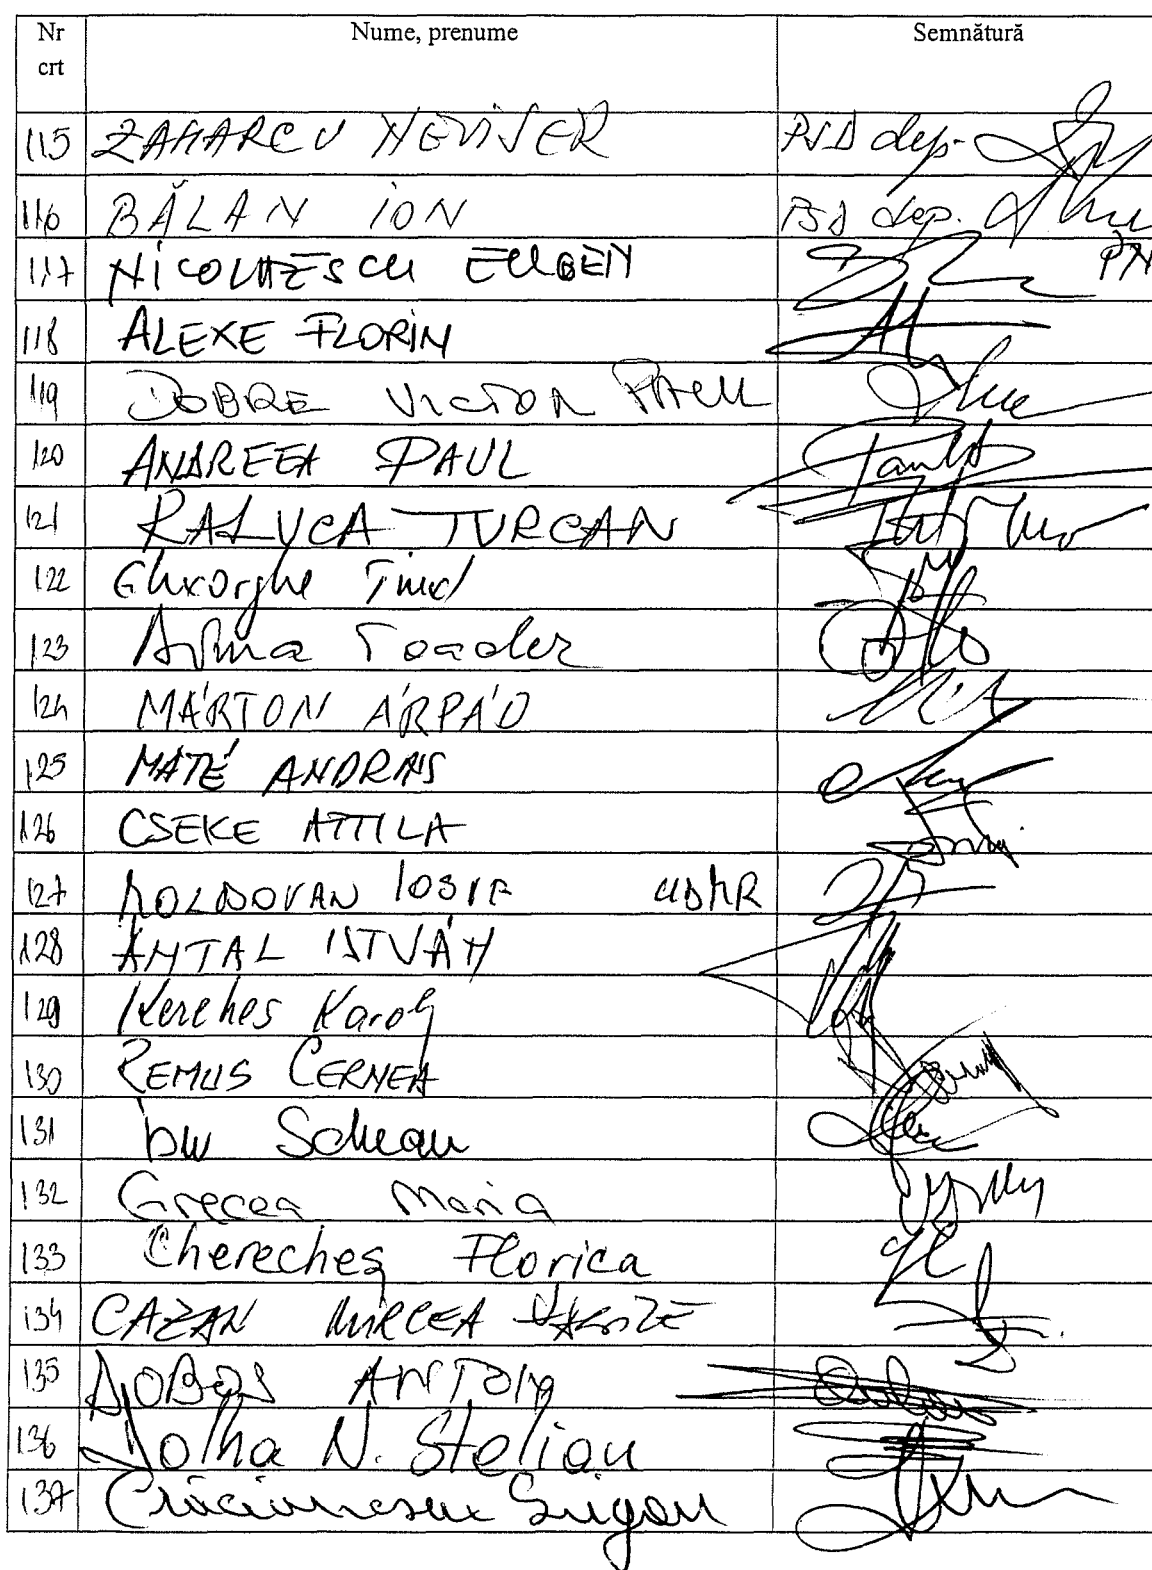 Nr crt Nume, prenume Semnătură
115 ZAHARCU NEVISER PSD dep.
116 BĂLAN ION PSD dep.
117 NICOLĂESCU EUGEN PN
118 ALEXE FLORIN
119 DOBRE VICTOR PAUL
120 ANDREEA PAUL
121 RALUCA TURCAN
122 Gheorghe Tinel
123 Toader
124 MÁRTON ÁRPÁD
125 MÁTÉ ANDRAS
126 CSEKE ATTILA
127 MOLDOVAN IOSIF UDMR
128 ANTAL ISTVÁN
129 Kereches Karoly
130 REMUS CERNEA
131 Ion
132 Grecea Maria
133 Chereches Florica
134 CAZAN MIRCEA
135 DOBOS ANTON
136 Dolha N. Stelian
137